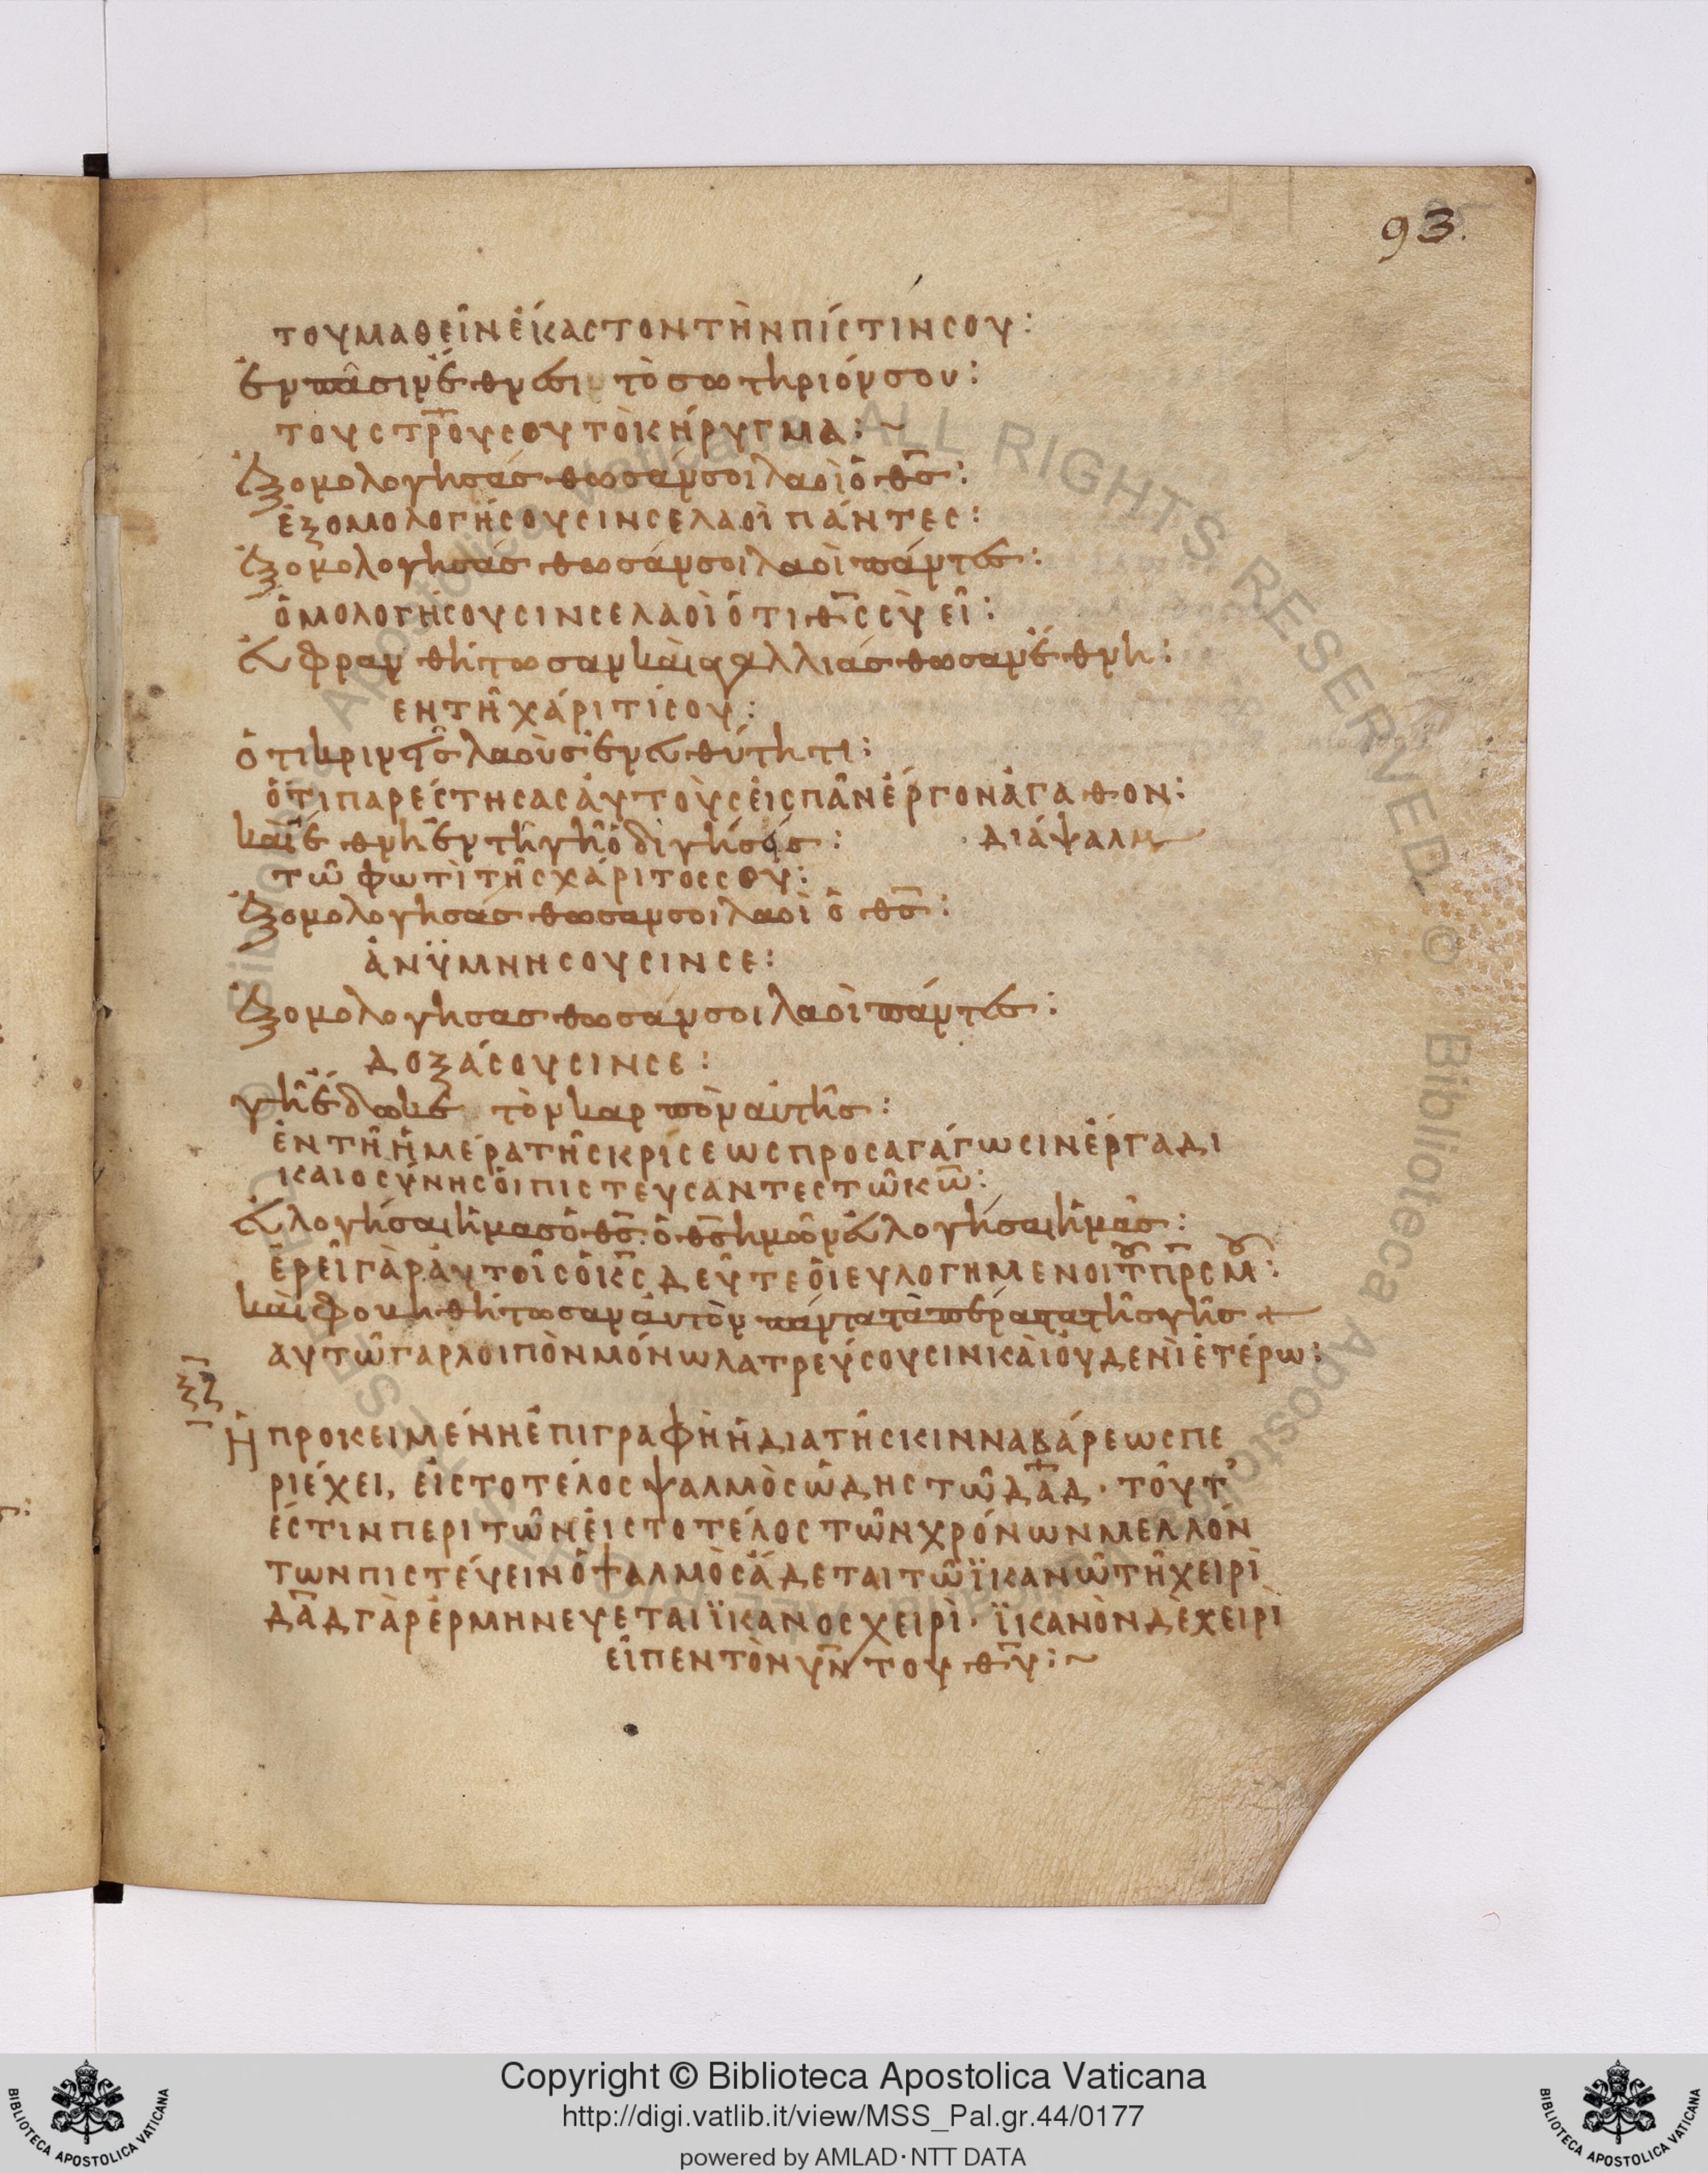 93.
τουμαθεῖν ἕκαστον τὴν πίστιν σου:
ἐν πᾶσιν ἔθνεσι τὸ σωτήριόν σου:
τους τρ̅ους ου τὸ κήρυγμα: ~
Ἐξομολογησάσθωσάν σοι λαοὶ ὁ θ̅ς̅:
ἐξομολογήσουσιν σε λαοὶ πάντες:
Ἐξομολογησάσθωσάν σοι λαοὶ πάντες:
ὁμολογήσουσιν σε λαοὶ ὅτι θ̅ς̅ σὺ εἶ:
Εὐφρανθήτωσαν καὶ ἀγαλλιάσθωσαν ἔθνη:
εν τῇ χάριτί σου:
ὅτι κρινεῖς λαοὺς ἐν εὐθύτητι:
ὅτι παρέστησας ἀυτοὺς ἐις πᾶν ἔργον ἀγαθον:
καὶ ἔθνη ἐν τῇ γῇ ὁδιγήσεις: διάψαλμ
τῶ φωτὶ τῆς χάριτος σου:
Ἐξομολογησάσθωσαν σοι λαοὶ ὁ θ̅ς̅:
ἀνϋμνησουσιν σε:
Ἐξομολογησασθωσάν σοι λαοὶ πάντες:
δοξάσουσιν σε:
γῆ ἔδωκε τὸν καρπὸν αὐτῆς:
ἐν τῆ ἡμέρα τῆς κρίσεως προσαγάγωσιν ἔργα δι
καιοσύνης ὁι πιστευσαντες τῶ κ̅ω̅:
Εὐλογήσαι ἡμας ὁ θ̅ς̅. ὁ θ̅ς̅ ημῶν εὐλογήσαι ἡμᾶς:
ἐρεῖ γὰρ ἀυτοῖς ὁ κ̅ς̅ δεῦτε ὁι ευλογημενοι τ̅ π̅ρ̅ς̅ μ̅:
καὶ φοβηθήτωσαν ἀυτὸν πάντα τὰ πέρατα τῆς γῆς +
αυτῶ γαρ λοιπὸν μόνω λατρεύσουσιν κὰι ὀυδενὶ ἑτέρω:
ξζ
Ἡ προκειμένη ἐπιγραφὴ ἡ δια τῆς κινναβάρεως πε
ριέχει, εἰς το τέλος ψαλμὸς ὠδης τῶ δ̅α̅δ̅· τοῦτ᾽
ἐστιν περι τῶν ἐις το τέλος τῶν χρόνων μελλόν
των πιστέυειν ὁ ψαλμὸς ἄδεται τῶ ϊκανῶ τῇ χειρὶ
δ̅α̅δ̅ γὰρ ἐρμηνευεται ϊκανος χειρὶ· ϊκανὸν δὲ χειρὶ
εἶπεν τὸν υ̅ν̅ του θ̅υ̅: ~
Copyright © Biblioteca Apostolica Vaticana
http://digi.vatlib.it/view/MSS_Pal.gr.44/0177
powered by AMLAD·NTT DATA